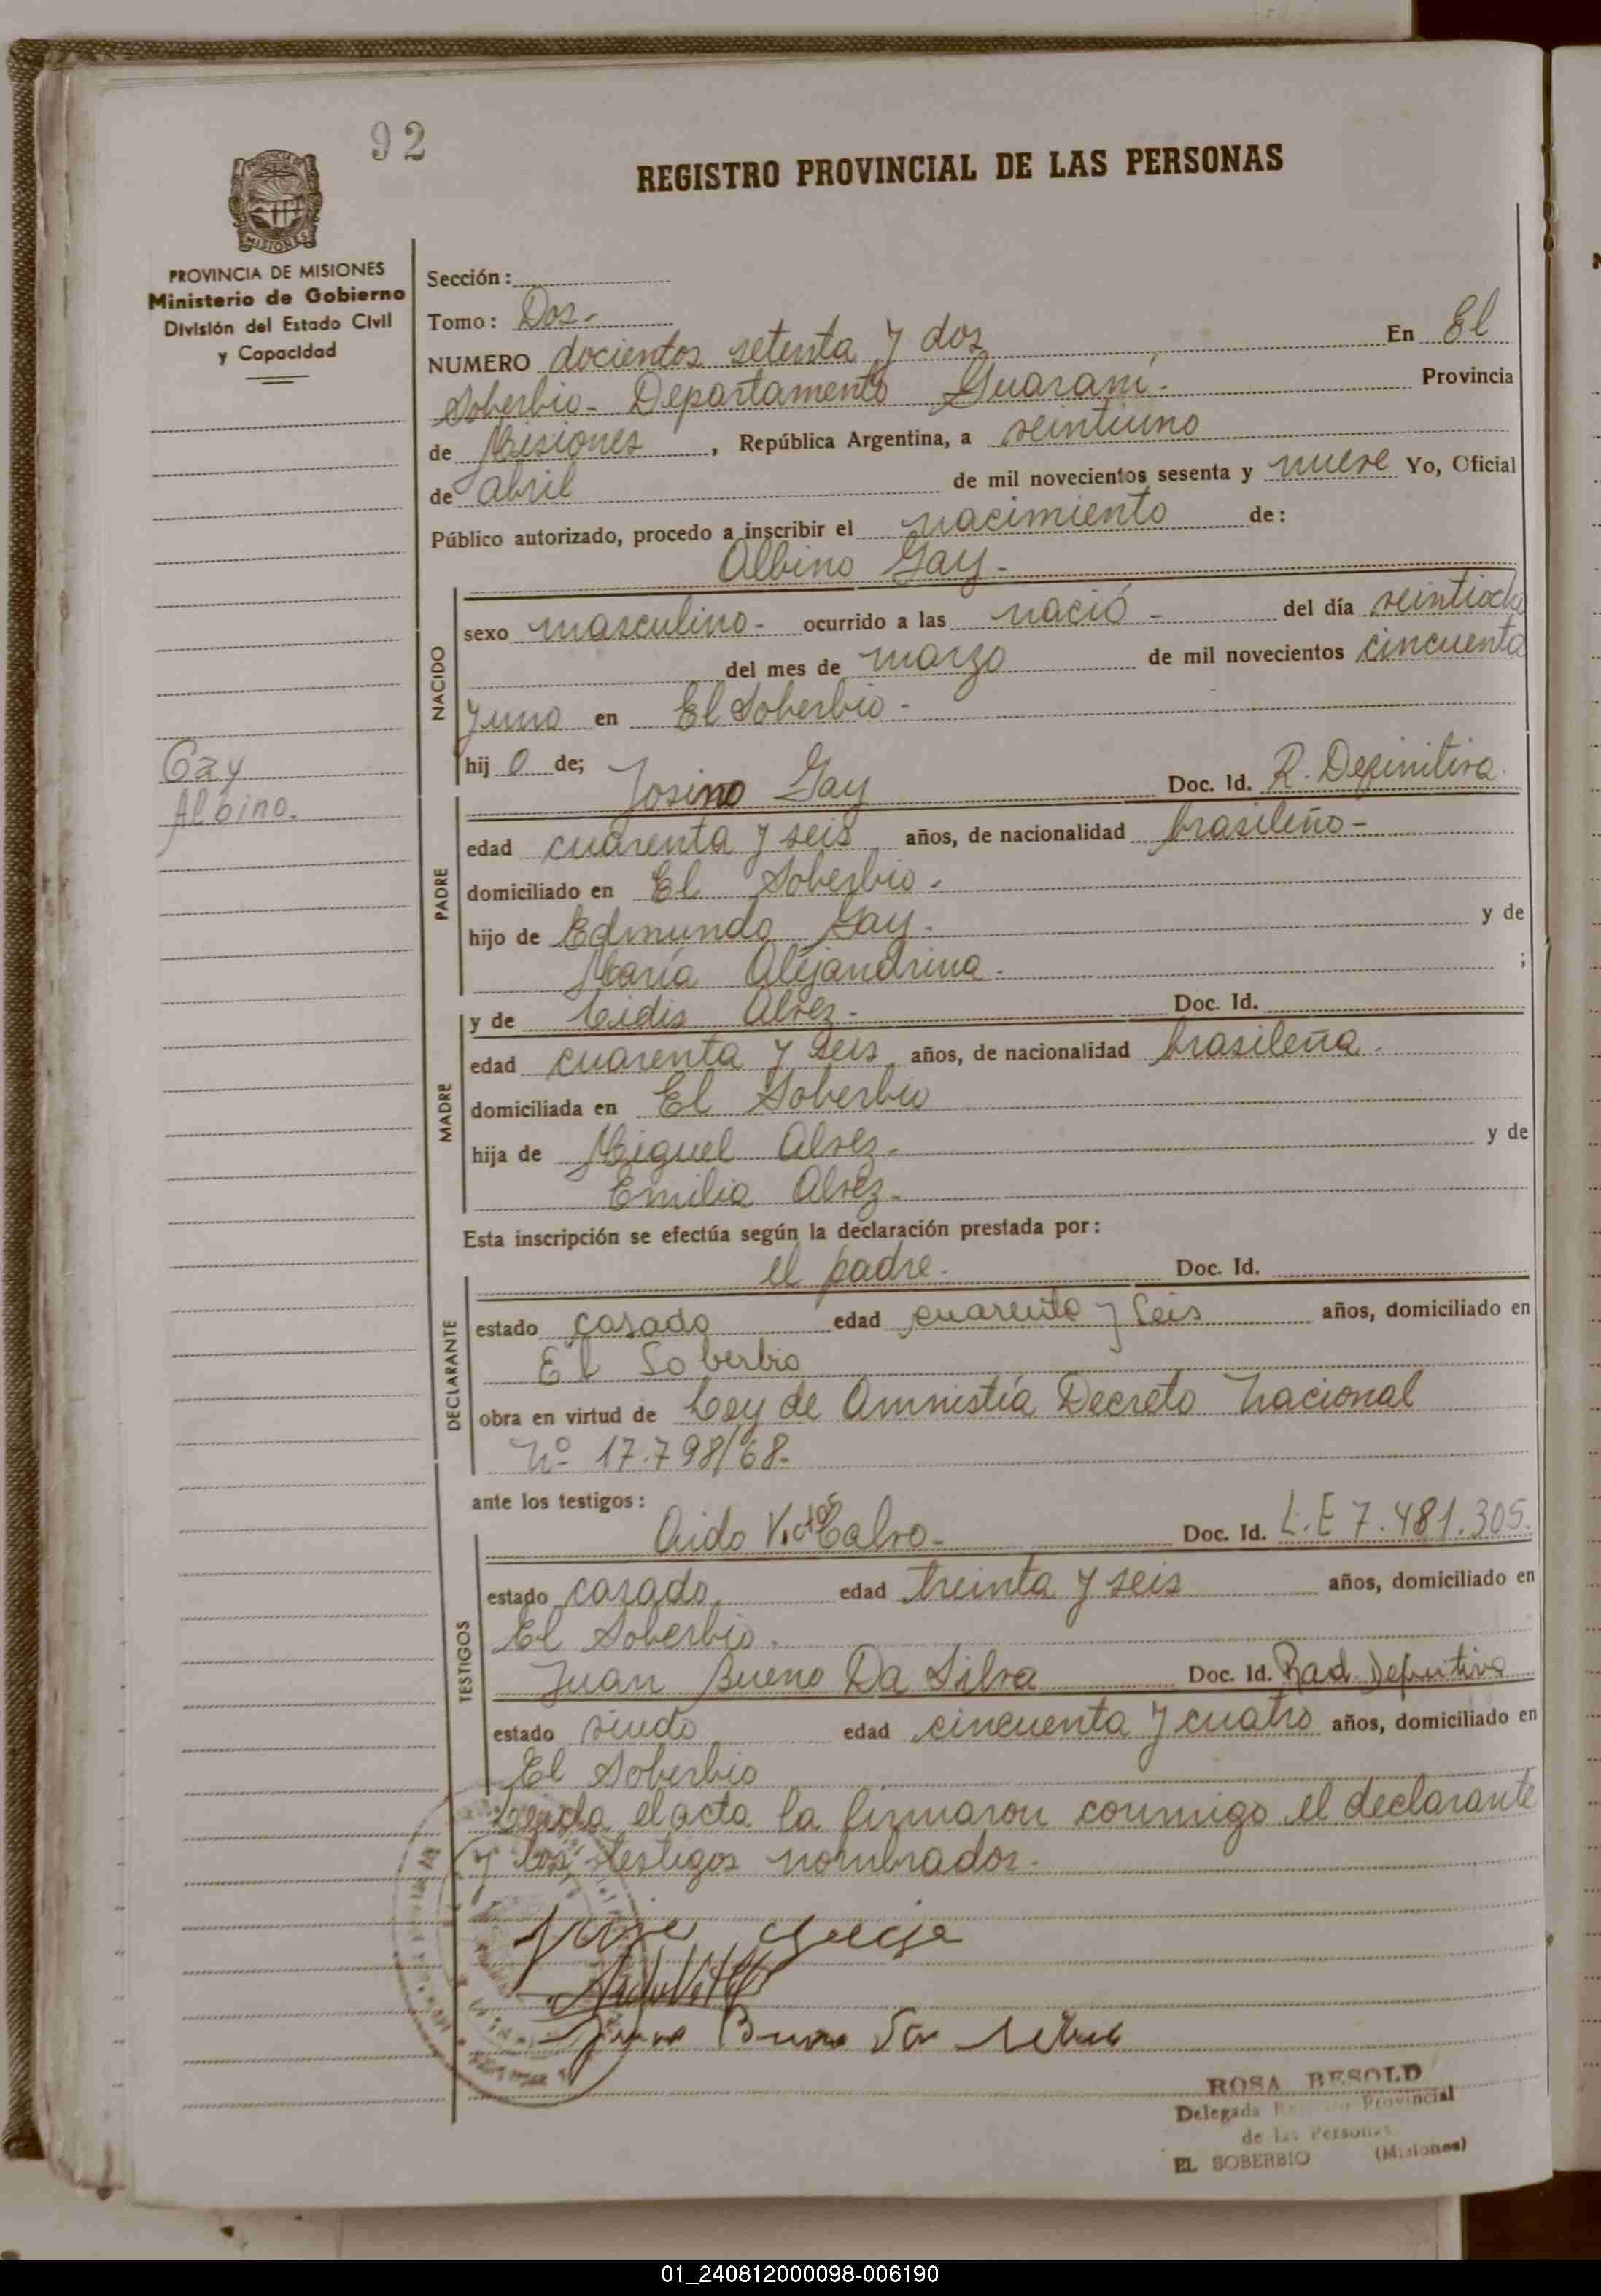 92
REGISTRO PROVINCIAL DE LAS PERSONAS
MISIONES
PROVINCIA DE MISIONES
Ministerio de Gobierno
División del Estado Civil
y Capacidad
Sección:
Tomo: Dos.-
NUMERO docientos setenta y dos En El
Soberbio- Departamento Guaraní.- Provincia
de Misiones, República Argentina, a veintiuno
de abril de mil novecientos sesenta y nueve Yo, Oficial
Público autorizado, procedo a inscribir el nacimiento de:
Albino Gay.-
NACIDO
sexo masculino- ocurrido a las nació - del día veintiocho
del mes de marzo de mil novecientos cincuenta
y uno en El Soberbio-
hij o de;
Gay
Albino.
Josino Gay Doc. Id. R. Definitiva.
PADRE
edad cuarenta y seis años, de nacionalidad brasileño-
domiciliado en El Soberbio.
hijo de Edmundo Gay. y de
María Alejandrina. ;
y de Lidis Alvez.- Doc. Id.
MADRE
edad cuarenta y seis años, de nacionalidad brasileña.
domiciliada en El Soberbio
hija de Miguel Alvez. y de
Emilia Alvez.
Esta inscripción se efectúa según la declaración prestada por:
el padre. Doc. Id.
DECLARANTE
estado casado edad cuarenta y seis años, domiciliado en
El Soberbio
obra en virtud de Ley de Amnistía Decreto Nacional
Nº 17.798/68.
ante los testigos:
Aido Calvo- Doc. Id. L.E 7.481.305.
TESTIGOS
estado casado edad treinta y seis años, domiciliado en
El Soberbio.
Juan Bueno Da Silva Doc. Id. Rad. Definitiva
estado viudo edad cincuenta y cuatro años, domiciliado en
El Soberbio
Leida el acta la firmaron conmigo el declarante
y los testigos nombrados.
ROSA BESOLD
Delegada Provincial
de las Personas
EL SOBERBIO (Misiones)
01_240812000098-006190